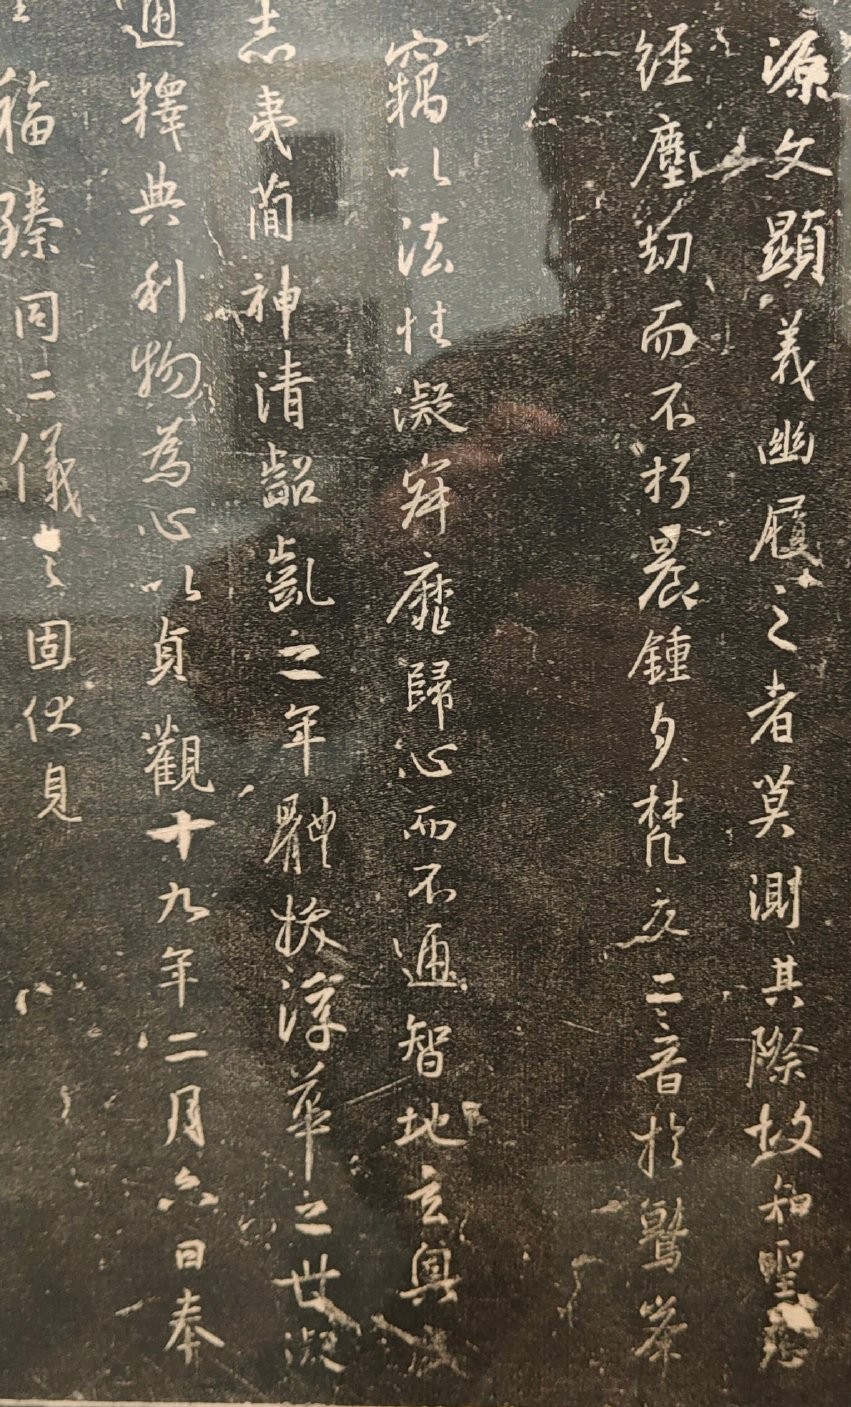 源文顯義幽履之者莫測其際故知聖慈
經塵劫而不朽晨鍾夕梵交二音於鷲峯
竊以法性凝寂靡歸心而不通智地玄奧
志夷簡神清齠齔之年體拔浮華之世凝
通釋典利物為心以貞觀十九年二月六日奉
福臻同二儀之固伏見